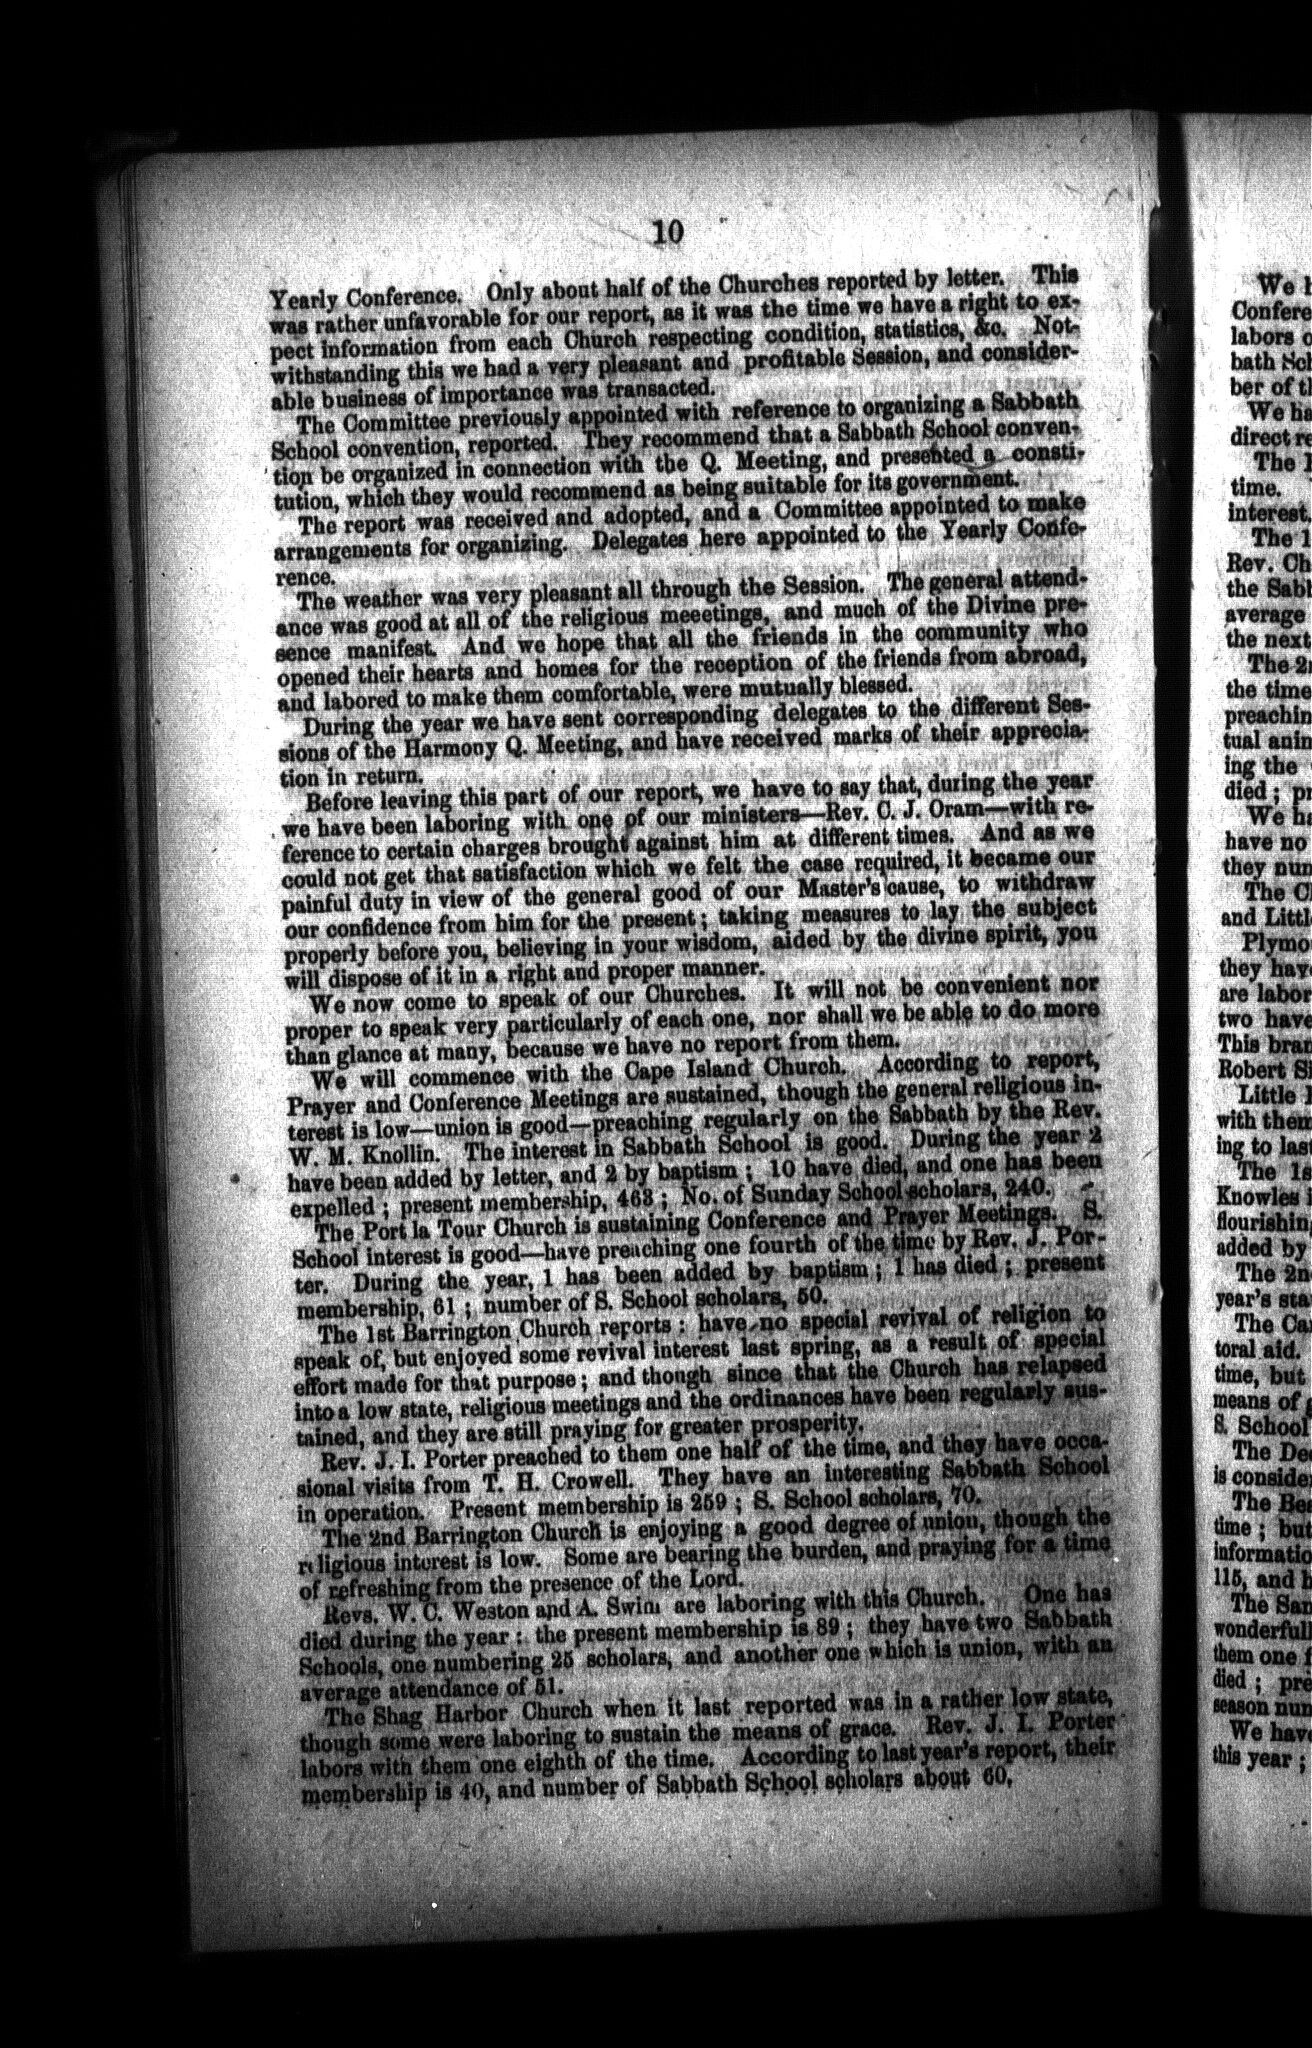 10
Yearly Conference. Only about half of the Churches reported by letter. This
was rather unfavorable for our report, as it was the time we have a right to ex-
pect information from each Church respecting condition, statistics, &c. Not-
withstanding this we had a very pleasant and profitable Session, and consider-
able business of importance was transacted.
The Committee previously appointed with reference to organizing a Sabbath
School convention, reported. They recommend that a Sabbath School conven-
tion be organized in connection with the Q. Meeting, and presented a consti-
tution, which they would recommend as being suitable for its government.
The report was received and adopted, and a Committee appointed to make
arrangements for organizing. Delegates here appointed to the Yearly Confe-
rence.
The weather was very pleasant all through the Session. The general attend-
ance was good at all of the religious meeetings, and much of the Divine pre-
sence manifest. And we hope that all the friends in the community who
opened their hearts and homes for the reception of the friends from abroad,
and labored to make them comfortable, were mutually blessed.
During the year we have sent corresponding delegates to the different Ses-
sions of the Harmony Q. Meeting, and have received marks of their apprecia-
tion in return.
Before leaving this part of our report, we have to say that, during the year
we have been laboring with one of our ministers—Rev. C. J. Oram—with re-
ference to certain charges brought against him at different times. And as we
could not get that satisfaction which we felt the case required, it became our
painful duty in view of the general good of our Master's cause, to withdraw
our confidence from him for the present; taking measures to lay the subject
properly before you, believing in your wisdom, aided by the divine spirit, you
will dispose of it in a right and proper manner.
We now come to speak of our Churches. It will not be convenient nor
proper to speak very particularly of each one, nor shall we be able to do more
than glance at many, because we have no report from them.
We will commence with the Cape Island Church. According to report,
Prayer and Conference Meetings are sustained, though the general religious in-
terest is low—union is good—preaching regularly on the Sabbath by the Rev.
W. M. Knollin. The interest in Sabbath School is good. During the year 2
have been added by letter, and 2 by baptism; 10 have died, and one has been
expelled; present membership, 463; No. of Sunday School scholars, 240.
The Port la Tour Church is sustaining Conference and Prayer Meetings. S.
School interest is good—have preaching one fourth of the time by Rev. J. Por-
ter. During the year, 1 has been added by baptism; 1 has died; present
membership, 61; number of S. School scholars, 50.
The 1st Barrington Church reports: have no special revival of religion to
speak of, but enjoyed some revival interest last spring, as a result of special
effort made for that purpose; and though since that the Church has relapsed
into a low state, religious meetings and the ordinances have been regularly sus-
tained, and they are still praying for greater prosperity.
Rev. J. I. Porter preached to them one half of the time, and they have occa-
sional visits from T. H. Crowell. They have an interesting Sabbath School
in operation. Present membership is 259; S. School scholars, 70.
The 2nd Barrington Church is enjoying a good degree of union, though the
religious interest is low. Some are bearing the burden, and praying for a time
of refreshing from the presence of the Lord.
Revs. W. C. Weston and A. Swim are laboring with this Church. One has
died during the year: the present membership is 89; they have two Sabbath
Schools, one numbering 25 scholars, and another one which is union, with an
average attendance of 51.
The Shag Harbor Church when it last reported was in a rather low state,
though some were laboring to sustain the means of grace. Rev. J. I. Porter
labors with them one eighth of the time. According to last year's report, their
membership is 40, and number of Sabbath School scholars about 60.
We
Confere
labors
bath
ber of
We ha
direct re
The
time.
interest.
The
Rev. Ch
the Sabb
average
the next
The 2n
the time
preachin
tual anim
ing the
died; pr
We ha
have no
they num
The C
and Little
Plymo
they have
are labor
two have
This bran
Robert Si
Little
with them
ing to last
The 1s
Knowles
flourishin
added by
The 2n
year's sta
The Ca
toral aid.
time, but
means of
S. School
The De
is consider
The Bea
time; but
informatio
115, and
The San
wonderfull
them one
died; pre
season num
We have
this year;